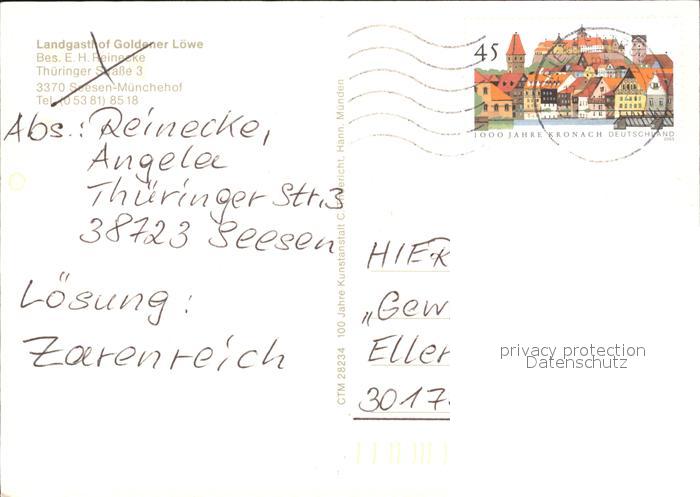 Landgasthof Goldener Löwe
Bes. E. H. Reinecke
Thüringer Straße 3
3370 Seesen-Münchehof
Tel. (0 53 81) 85 18
Abs.: Reinecke,
Angela
Thüringer Str. 3
38723 Seesen
Lösung:
Zarenreich
CTM 28234 100 Jahre Kunstanstalt C. Hann. Münden
45
1000 JAHRE KRONACH DEUTSCHLAND
HIER
„Gew
Eller
3017
privacy protection
Datenschutz